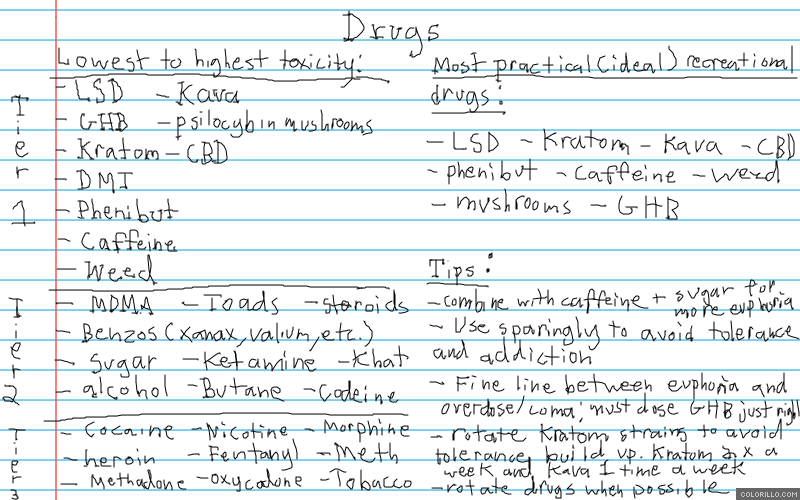 Drugs
Lowest to highest toxicity:
Tier 1
- LSD - Kava
- GHB - psilocybin mushrooms
- Kratom - CBD
- DMT
- Phenibut
- Caffeine
- Weed
Tier 2
- MDMA - Toads - steroids
- Benzos (xanax, valium, etc.)
- Sugar - Ketamine - Khat
- alcohol - Butane - Codeine
Tier 3
- Cocaine - Nicotine - Morphine
- heroin - Fentanyl - Meth
- Methadone - oxycodone - Tobacco
Most practical (ideal) recreational
drugs:
- LSD - Kratom - Kava - CBD
- phenibut - Caffeine - Weed
- mushrooms - GHB
Tips:
- combine with caffeine + sugar for
more euphoria
- Use sparingly to avoid tolerance
and addiction
- Fine line between euphoria and
overdose/coma; must dose GHB just right
- rotate Kratom strains to avoid
tolerance build up. Kratom 2x a
week and Kava 1 time a week
- rotate drugs when possible
COLORILLO.COM